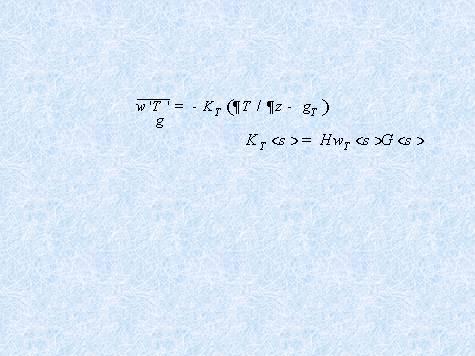 w'T' = - K_T (¶T / ¶z - g_T )
g
K_T <s > = Hw_T <s >G <s >